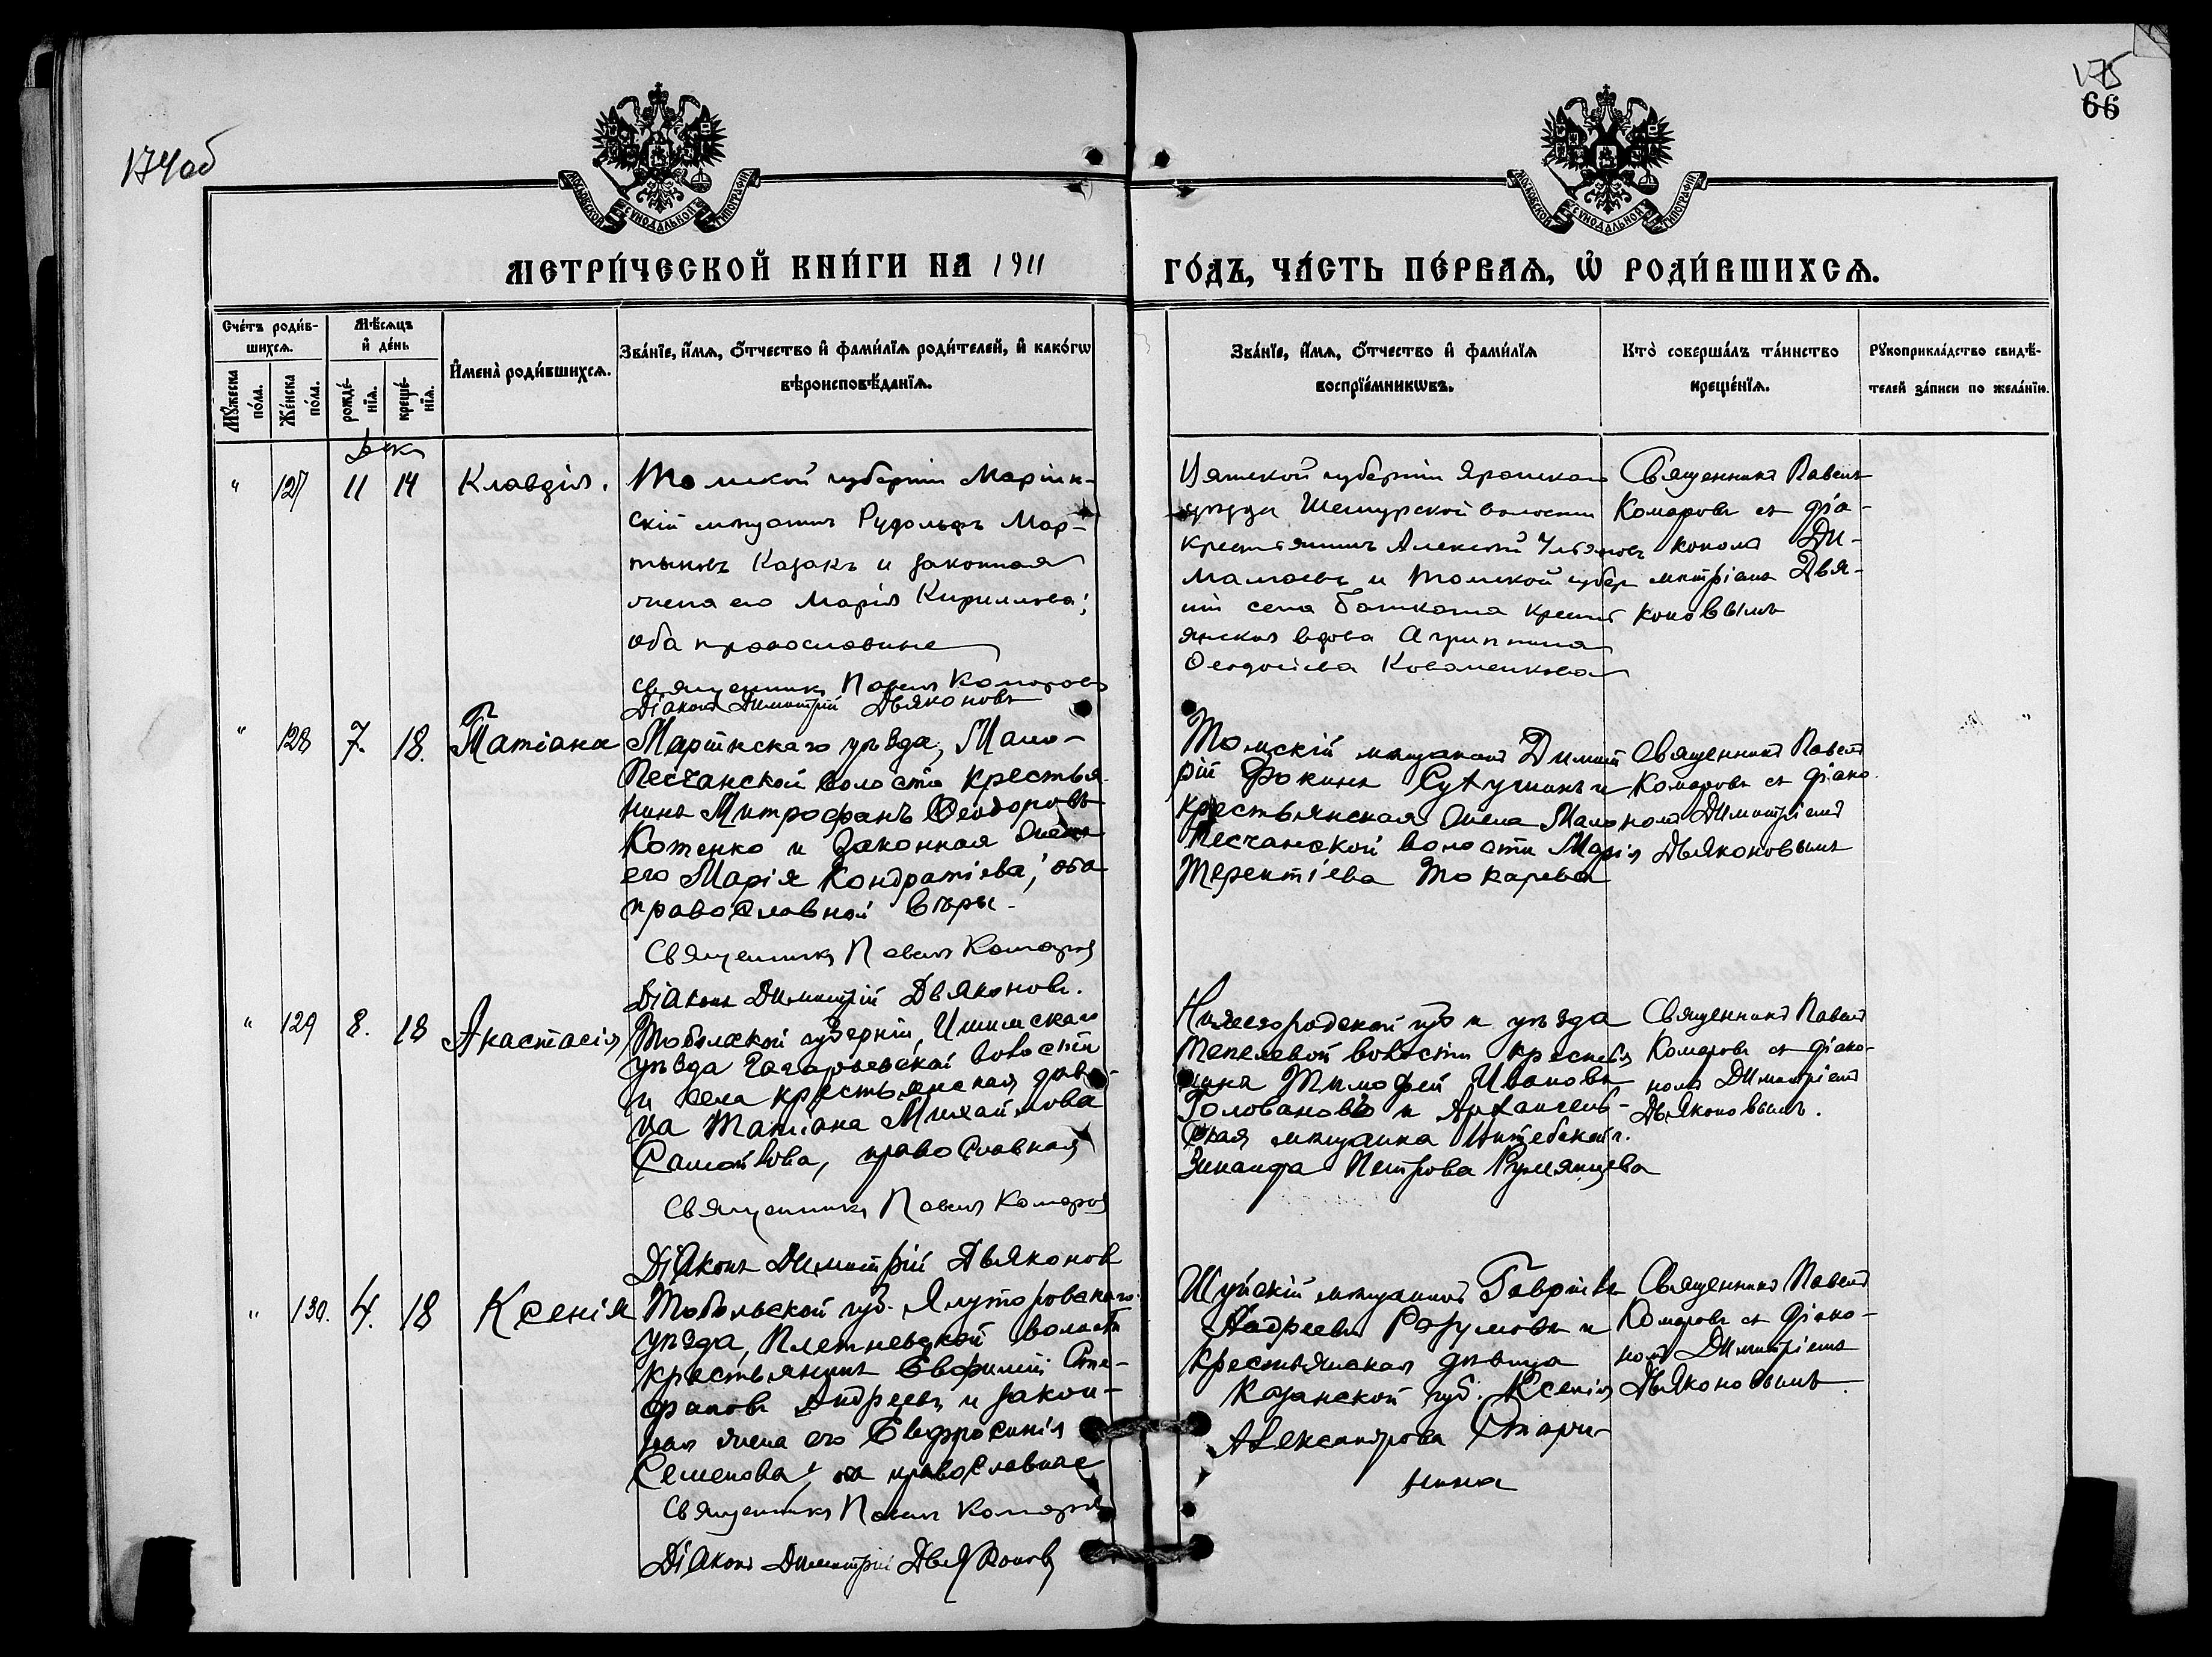 174об
175
66
МОСКОВСКОЙ СѴНОДАЛЬНОЙ ТИПОГРАФІИ
МОСКОВСКОЙ СѴНОДАЛЬНОЙ ТИПОГРАФІИ
МЕТРИ́ЧЕСКОЙ КНИ́ГИ НА 1911
ГО́ДЪ, ЧА́СТЬ ПЕ́РВАѦ, Ѡ҆ РОДИ́ВШИХСѦ.
Сче́тъ роди́в-
шихсѧ.
Мꙋ́жеска
по́ла.
Же́нска
по́ла.
Мѣ́сѧцъ
и҆ де́нь
рожде́-
нїѧ.
креще́-
нїѧ.
И҆мена̀ роди́вшихсѧ.
Зва́нїе, и҆́мѧ, ѻ҆́тчество и҆ фами́лїѧ роди́телей, и҆ како́гѡ
вѣроисповѣ́данїѧ.
Зва́нїе, и҆́мѧ, ѻ҆́тчество и҆ фами́лїѧ
воспрїе́мникѡвъ.
Кто̀ соверша́лъ та́инство
креще́нїѧ.
Рꙋкоприкла́дство свидѣ́-
телей за́писи по жела́нїю.
Дек
" 127 11 14 Клавдія.
Томской губерніи Маріин-
скій мѣщанинъ Рудольфъ Мар-
тыновъ Казакъ и законная
жена его Марія Кирилова;
оба православные
Священникъ Павелъ Комаровъ
Діаконъ Димитрій Дьяконовъ
Вятской губерніи Яранскаго
уѣзда Шешурской волости
крестьянинъ Алексѣй Ульяновъ
Мамаевъ и Томской губер
ніи села Батката крестья
янская вдова Агриппина
Ѳеодосіева Коваленкова
Священникъ Павелъ
Комаровъ съ діа-
кономъ Ди-
митріемъ Дья-
коновымъ
" 128 7. 18. Татіана
Маріинскаго уѣзда, Мало-
Песчанской волости крестья-
нинъ Митрофанъ Ѳеодоровъ
Котенко и законная жена
его Марія Кондратіева; оба
православной вѣры.
Священникъ Павелъ Комаровъ
Діаконъ Димитрій Дьяконовъ.
Томскій мѣщанинъ Димит
рій Фокинъ и
крестьянская жена Мало
Песчанской волости Марія
Терентіева Токарева
Священникъ Павелъ
Комаровъ съ діако-
номъ Димитріемъ
Дьяконовымъ
" 129 8. 18 Анастасія
Тобольской губерніи, Ишимскаго
уѣзда волости
и села крестьянская дѣви-
ца Татіана Михайлова
Самойлова, православная
Священникъ Павелъ Комаровъ
Діаконъ Димитрій Дьяконов
Нижегородской губ и уѣзда
Тепелевой волости крестья
нинъ Тимофей Ивановъ
Головановъ и Архангель-
ская мѣщанка
Зинаида Петрова Румянцева
Священникъ Павелъ
Комаровъ съ діако-
номъ Димитріемъ
Дьяконовымъ.
" 130. 4. 18 Ксенія
Тобольской губ. Ялуторовскаго
уѣзда, Плетневской волости
крестьянинъ Евфимій Сте-
фановъ Андреевъ и закон-
ная жена его Евфросинія
Семенова, оба православные
Священникъ Павелъ Комаровъ
Діаконъ Димитрій Дьяконовъ
Шуйскій мѣщанинъ Гавріилъ
Андреевъ Разумовъ и
крестьянская дѣвица
Казанской губ. Ксенія
Александрова Стари-
нина
Священникъ Павелъ
Комаровъ съ діако-
номъ Димитріемъ
Дьяконовымъ.